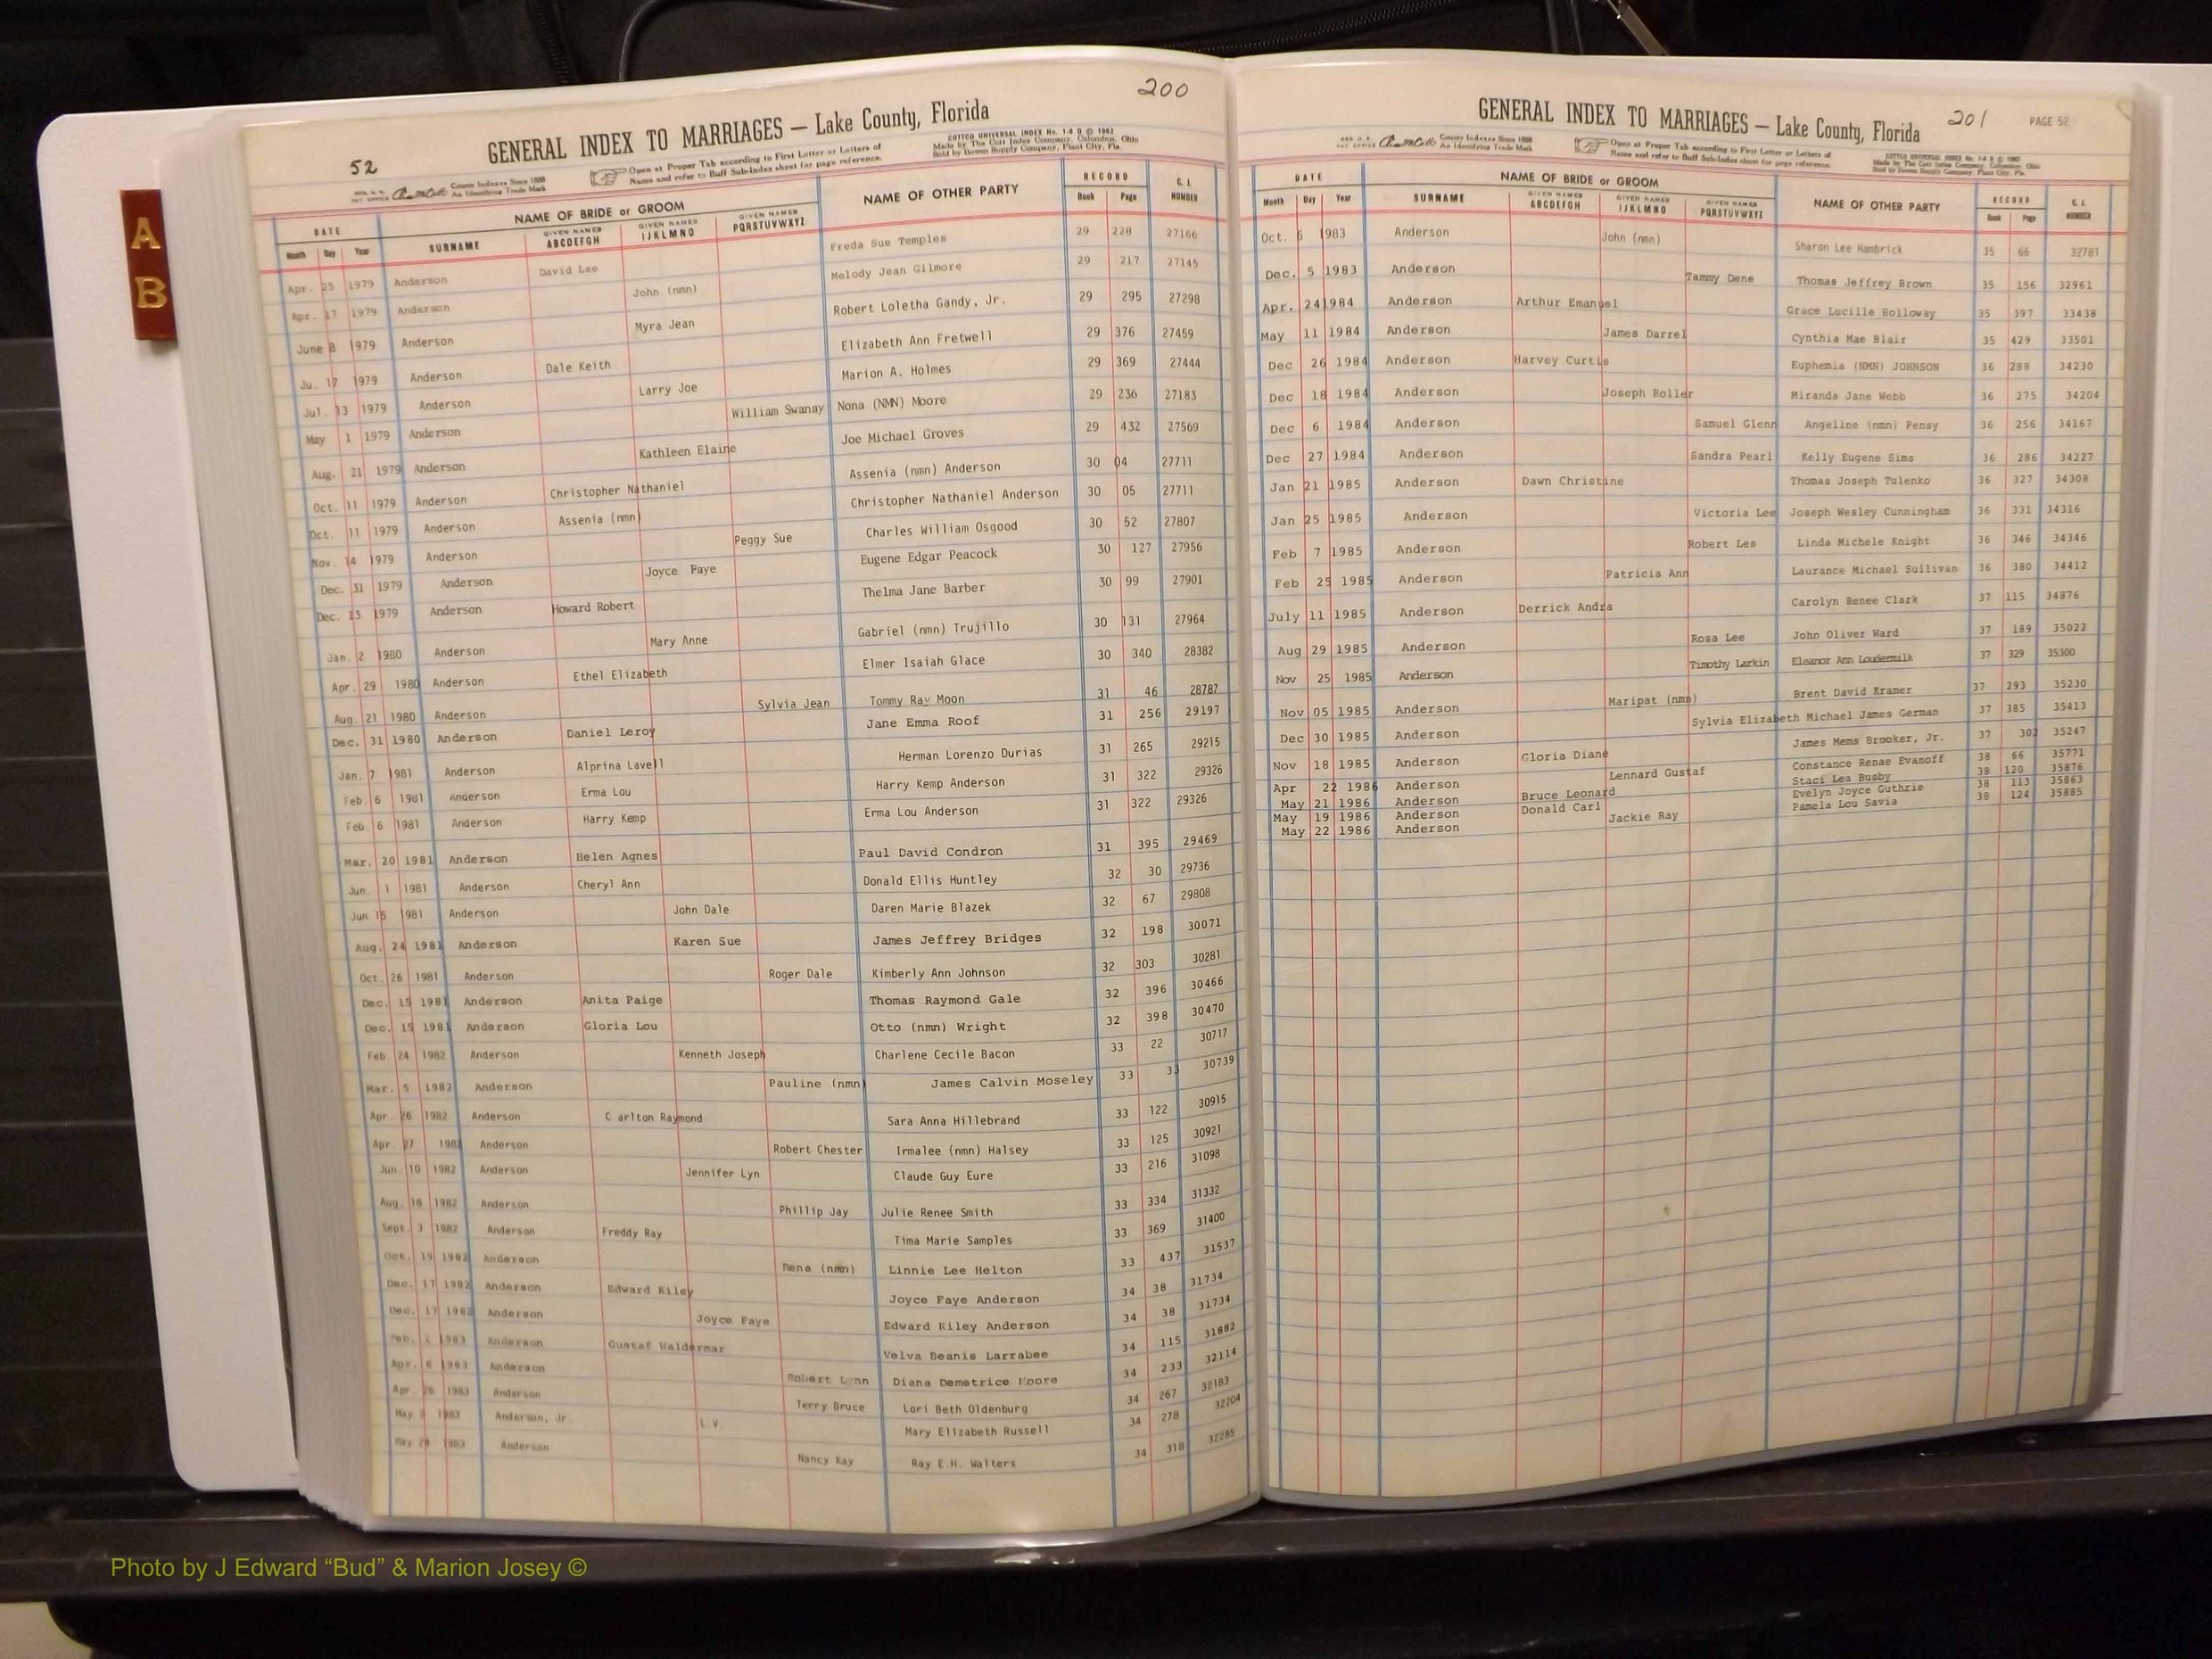 A
B
52
200
GENERAL INDEX TO MARRIAGES — Lake County, Florida
COTTCO UNIVERSAL INDEX No. 1-9 D © 1962
Made by The Cott Index Company, Columbus, Ohio
Sold by Bowen Supply Company, Plant City, Fla.
County Indexes Since 1888
An Identifying Trade Mark
Open at Proper Tab according to First Letter or Letters of
Name and refer to Buff Sub-Index sheet for page reference.
DATE NAME OF BRIDE or GROOM NAME OF OTHER PARTY RECORD C. I.
Month Day Year SURNAME GIVEN NAMES ABCDEFGH GIVEN NAMES IJKLMNO GIVEN NAMES PQRSTUVWXYZ Book Page NUMBER
Apr. 25 1979 Anderson David Lee Freda Sue Temples 29 228 27166
Apr. 17 1979 Anderson John (nmn) Melody Jean Gilmore 29 217 27145
June 8 1979 Anderson Myra Jean Robert Loletha Gandy, Jr. 29 295 27298
Ju. 17 1979 Anderson Dale Keith Elizabeth Ann Fretwell 29 376 27459
Jul. 13 1979 Anderson Larry Joe Marion A. Holmes 29 369 27444
May 1 1979 Anderson William Swanay Nona (NMN) Moore 29 236 27183
Aug. 21 1979 Anderson Kathleen Elaine Joe Michael Groves 29 432 27569
Oct. 11 1979 Anderson Christopher Nathaniel Assenia (nmn) Anderson 30 04 27711
Oct. 11 1979 Anderson Assenia (nmn) Christopher Nathaniel Anderson 30 05 27711
Nov. 14 1979 Anderson Peggy Sue Charles William Osgood 30 52 27807
Dec. 31 1979 Anderson Joyce Faye Eugene Edgar Peacock 30 127 27956
Dec. 13 1979 Anderson Howard Robert Thelma Jane Barber 30 99 27901
Jan. 2 1980 Anderson Mary Anne Gabriel (nmn) Trujillo 30 131 27964
Apr. 29 1980 Anderson Ethel Elizabeth Elmer Isaiah Glace 30 340 28382
Aug. 21 1980 Anderson Sylvia Jean Tommy Ray Moon 31 46 28787
Dec. 31 1980 Anderson Daniel Leroy Jane Emma Roof 31 256 29197
Jan. 7 1981 Anderson Alprina Lavell Herman Lorenzo Durias 31 265 29215
Feb. 6 1981 Anderson Erma Lou Harry Kemp Anderson 31 322 29326
Feb. 6 1981 Anderson Harry Kemp Erma Lou Anderson 31 322 29326
Mar. 20 1981 Anderson Helen Agnes Paul David Condron 31 395 29469
Jun. 1 1981 Anderson Cheryl Ann Donald Ellis Huntley 32 30 29736
Jun 15 1981 Anderson John Dale Daren Marie Blazek 32 67 29808
Aug. 24 1981 Anderson Karen Sue James Jeffrey Bridges 32 198 30071
Oct. 26 1981 Anderson Roger Dale Kimberly Ann Johnson 32 303 30281
Dec. 15 1981 Anderson Anita Paige Thomas Raymond Gale 32 396 30466
Dec. 15 1981 Anderson Gloria Lou Otto (nmn) Wright 32 398 30470
Feb. 24 1982 Anderson Kenneth Joseph Charlene Cecile Bacon 33 22 30717
Mar. 5 1982 Anderson Pauline (nmn) James Calvin Moseley 33 33 30739
Apr. 26 1982 Anderson C arlton Raymond Sara Anna Hillebrand 33 122 30915
Apr. 27 1982 Anderson Robert Chester Irmalee (nmn) Halsey 33 125 30921
Jun. 10 1982 Anderson Jennifer Lyn Claude Guy Eure 33 216 31098
Aug. 18 1982 Anderson Phillip Jay Julie Renee Smith 33 334 31332
Sept. 3 1982 Anderson Freddy Ray Tima Marie Samples 33 369 31400
Oct. 19 1982 Anderson Rena (nmn) Linnie Lee Helton 33 437 31537
Dec. 17 1982 Anderson Edward Kiley Joyce Faye Anderson 34 38 31734
Dec. 17 1982 Anderson Joyce Faye Edward Kiley Anderson 34 38 31734
Feb. 1983 Anderson Gustaf Waldermar Velva Beanis Larrabee 34 115 31882
Apr. 6 1983 Anderson Robert Lynn Diana Demetrice Moore 34 233 32114
Apr. 26 1983 Anderson Terry Bruce Lori Beth Oldenburg 34 267 32183
May 1983 Anderson, Jr. L.V. Mary Elizabeth Russell 34 278 32204
May 1983 Anderson Nancy Kay Ray E.H. Walters 34 318 32285
GENERAL INDEX TO MARRIAGES — Lake County, Florida
201
PAGE 52
County Indexes Since 1888
An Identifying Trade Mark
Open at Proper Tab according to First Letter or Letters of
Name and refer to Buff Sub-Index sheet for page reference.
COTTCO UNIVERSAL INDEX No. 1-9 D © 1962
Made by The Cott Index Company, Columbus, Ohio
Sold by Bowen Supply Company, Plant City, Fla.
DATE NAME OF BRIDE or GROOM NAME OF OTHER PARTY RECORD C. I.
Month Day Year SURNAME GIVEN NAMES ABCDEFGH GIVEN NAMES IJKLMNO GIVEN NAMES PQRSTUVWXYZ Book Page NUMBER
Oct. 6 1983 Anderson John (nmn) Sharon Lee Hambrick 35 66 32781
Dec. 5 1983 Anderson Tammy Dene Thomas Jeffrey Brown 35 156 32961
Apr. 24 1984 Anderson Arthur Emanuel Grace Lucille Holloway 35 397 33438
May 11 1984 Anderson James Darrel Cynthia Mae Blair 35 429 33501
Dec 26 1984 Anderson Harvey Curtis Euphemia (NMN) JOHNSON 36 288 34230
Dec 18 1984 Anderson Joseph Roller Miranda Jane Webb 36 275 34204
Dec 6 1984 Anderson Samuel Glenn Angeline (nmn) Pensy 36 256 34167
Dec 27 1984 Anderson Sandra Pearl Kelly Eugene Sims 36 286 34227
Jan 21 1985 Anderson Dawn Christine Thomas Joseph Tulenko 36 327 34308
Jan 25 1985 Anderson Victoria Lee Joseph Wesley Cunningham 36 331 34316
Feb 7 1985 Anderson Robert Les Linda Michele Knight 36 346 34346
Feb 25 1985 Anderson Patricia Ann Laurance Michael Sullivan 36 380 34412
July 11 1985 Anderson Derrick Andra Carolyn Renee Clark 37 115 34876
Aug 29 1985 Anderson Rosa Lee John Oliver Ward 37 189 35022
Nov 25 1985 Anderson Timothy Larkin Eleanor Ann Loudermilk 37 329 35300
Nov 05 1985 Anderson Maripat (nmn) Brent David Kramer 37 293 35230
Dec 30 1985 Anderson Sylvia Elizabeth Michael James German 37 385 35413
Nov 18 1985 Anderson Gloria Diane James Mems Brooker, Jr. 37 302 35247
Apr 22 1986 Anderson Lennard Gustaf Constance Renae Evanoff 38 66 35771
May 21 1986 Anderson Bruce Leonard Staci Lea Busby 38 120 35876
May 19 1986 Anderson Donald Carl Evelyn Joyce Guthrie 38 113 35863
May 22 1986 Anderson Jackie Ray Pamela Lou Savia 38 124 35885
Photo by J Edward “Bud” & Marion Josey ©